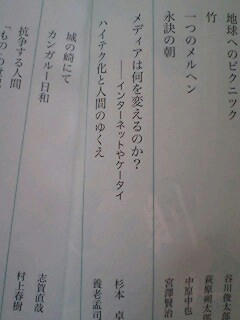 地球へのピクニック 谷川俊太郎
竹 萩原朔太郎
一つのメルヘン 中原中也
永訣の朝 宮澤賢治
メディアは何を変えるのか?
――インターネットやケータイ 杉本 卓
ハイテク化と人間のゆくえ 養老孟司
城の崎にて 志賀直哉
カンガルー日和 村上春樹
抗争する人間
「もの」の